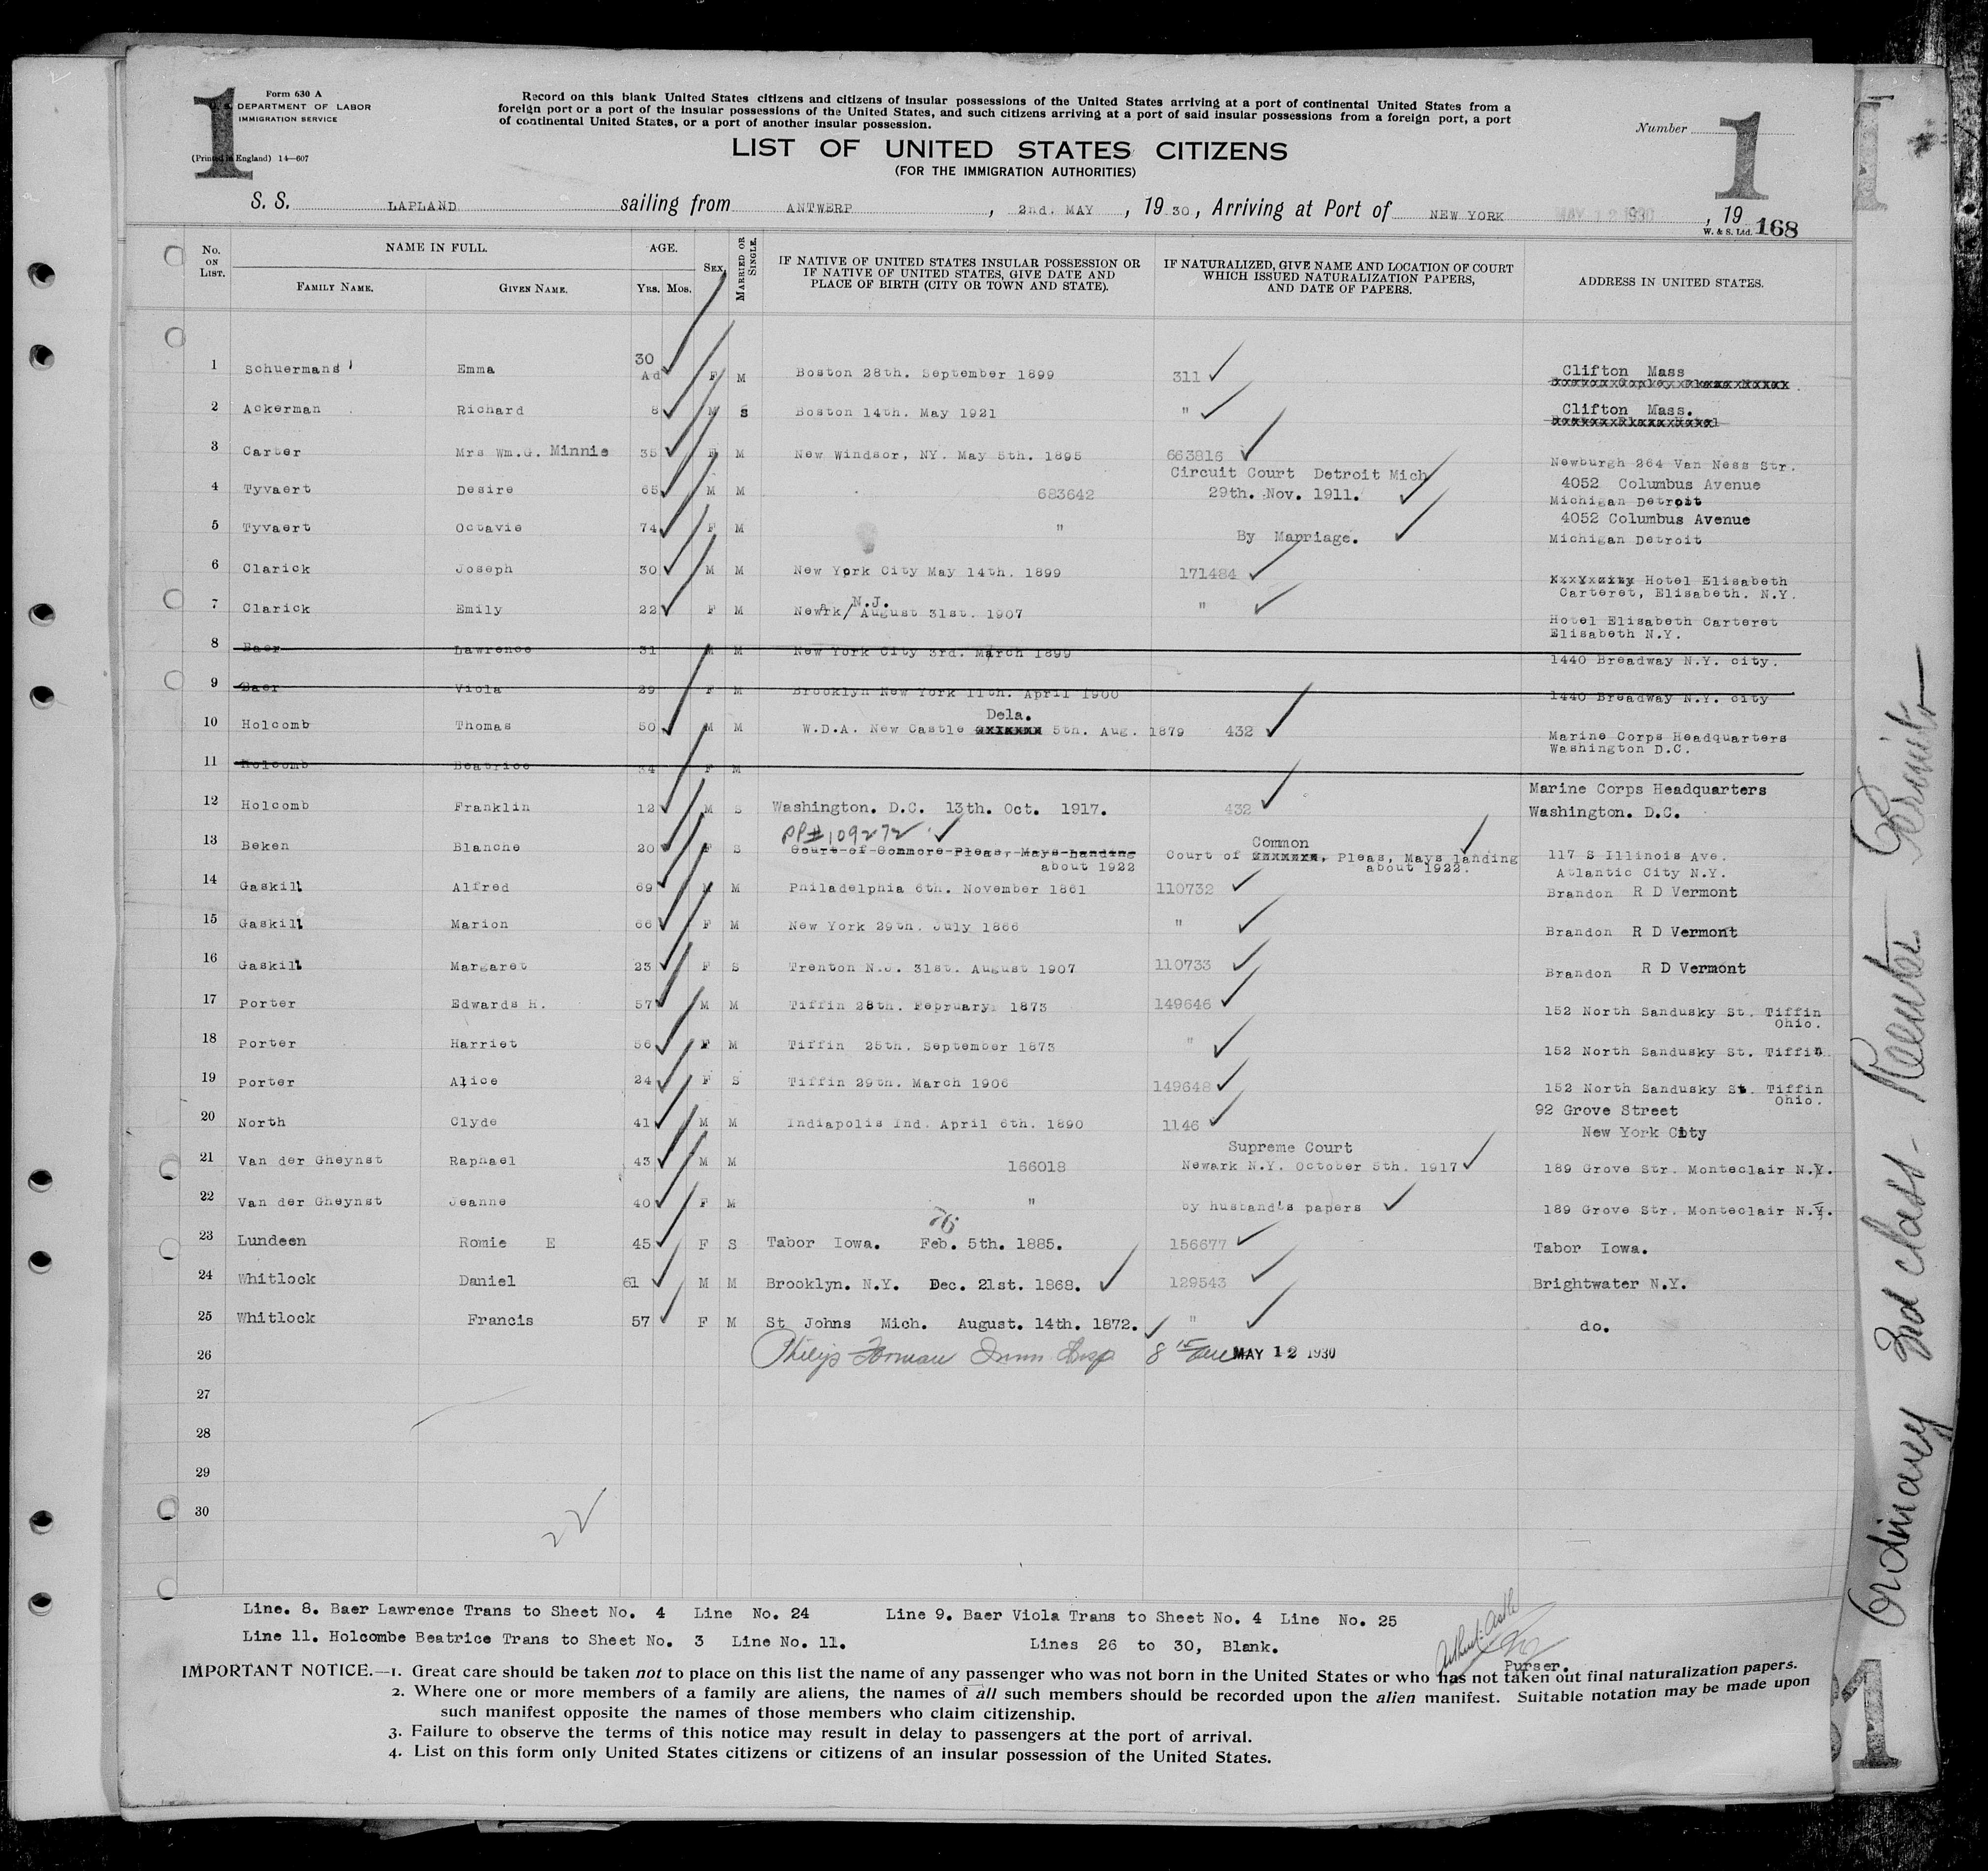 1
Form 630 A
U. S. DEPARTMENT OF LABOR
IMMIGRATION SERVICE
(Printed in England) 14—607
Record on this blank United States citizens and citizens of insular possessions of the United States arriving at a port of continental United States from a
foreign port or a port of the insular possessions of the United States, and such citizens arriving at a port of said insular possessions from a foreign port, a port
of continental United States, or a port of another insular possession.
Number 1
LIST OF UNITED STATES CITIZENS
(FOR THE IMMIGRATION AUTHORITIES)
S. S. LAPLAND sailing from ANTWERP, 2nd. MAY, 19 30, Arriving at Port of NEW YORK MAY 12 1930, 19
W. & S. Ltd. 168
No. ON LIST. NAME IN FULL. FAMILY NAME. GIVEN NAME. AGE. YRS. MOS. SEX. MARRIED OR SINGLE. IF NATIVE OF UNITED STATES INSULAR POSSESSION OR IF NATIVE OF UNITED STATES, GIVE DATE AND PLACE OF BIRTH (CITY OR TOWN AND STATE). IF NATURALIZED, GIVE NAME AND LOCATION OF COURT WHICH ISSUED NATURALIZATION PAPERS, AND DATE OF PAPERS. ADDRESS IN UNITED STATES.
1 Schuermans Emma 30 Ad F M Boston 28th. September 1899 311 Clifton Mass
2 Ackerman Richard 8 M S Boston 14th. May 1921 " Clifton Mass.
3 Carter Mrs Wm.G. Minnie 35 F M New Windsor, NY. May 5th. 1895 663816 Newburgh 264 Van Ness Str.
4 Tyvaert Desire 65 M M 683642 Circuit Court Detroit Mich 29th. Nov. 1911. 4052 Columbus Avenue Michigan Detroit
5 Tyvaert Octavie 74 F M " By Marriage. 4052 Columbus Avenue Michigan Detroit
6 Clarick Joseph 30 M M New York City May 14th. 1899 171484 Hotel Elisabeth Carteret, Elisabeth. N.Y.
7 Clarick Emily 22 F M Newark/ N.J. August 31st. 1907 " Hotel Elisabeth Carteret Elisabeth N.Y.
8 Baer Lawrence 31 M M New York City 3rd. March 1899 1440 Breadway N.Y. city.
9 Baer Viola 29 F M Brooklyn New York 11th. April 1900 1440 Breadway N.Y. city
10 Holcomb Thomas 50 M M W.D.A. New Castle Dela. 5th. Aug. 1879 432 Marine Corps Headquarters Washington D.C.
11 Holcomb Beatrice 34 F M
12 Holcomb Franklin 12 M S Washington. D.C. 13th. Oct. 1917. 432 Marine Corps Headquarters Washington. D.C.
PP# 109272
13 Beken Blanche 20 F S Court of Commore Pleas, Mays handing about 1922 Court of Common, Pleas, Mays landing about 1922. 117 S Illinois Ave. Atlantic City N.Y.
14 Gaskill Alfred 69 M M Philadelphia 6th. November 1861 110732 Brandon R D Vermont
15 Gaskill Marion 66 F M New York 29th. July 1866 " Brandon R D Vermont
16 Gaskill Margaret 23 F S Trenton N.J. 31st. August 1907 110733 Brandon R D Vermont
17 Porter Edwards H. 57 M M Tiffin 28th. February 1873 149646 152 North Sandusky St. Tiffin Ohio.
18 Porter Harriet 56 F M Tiffin 25th. September 1873 " 152 North Sandusky St. Tiffin
19 Porter Alice 24 F S Tiffin 29th. March 1906 149648 152 North Sandusky St. Tiffin Ohio.
20 North Clyde 41 M M Indiapolis Ind. April 6th. 1890 1146 92 Grove Street New York City
21 Van der Gheynst Raphael 43 M M 166018 Supreme Court Newark N.Y. October 5th. 1917 189 Grove Str. Monteclair N.Y.
22 Van der Gheynst Jeanne 40 F M " by husband's papers 189 Grove Str. Monteclair N.Y.
76
23 Lundeen Romie E 45 F S Tabor Iowa. Feb. 5th. 1885. 156677 Tabor Iowa.
24 Whitlock Daniel 61 M M Brooklyn. N.Y. Dec. 21st. 1868. 129543 Brightwater N.Y.
25 Whitlock Francis 57 F M St Johns Mich. August. 14th. 1872. " do.
26 Philip Forman Imm. Insp MAY 12 1930
27
28
29
30
22
Line. 8. Baer Lawrence Trans to Sheet No. 4 Line No. 24 Line 9. Baer Viola Trans to Sheet No. 4 Line No. 25
Line 11. Holcombe Beatrice Trans to Sheet No. 3 Line No. 11. Lines 26 to 30, Blank.
Purser.
IMPORTANT NOTICE.—1. Great care should be taken not to place on this list the name of any passenger who was not born in the United States or who has not taken out final naturalization papers.
2. Where one or more members of a family are aliens, the names of all such members should be recorded upon the alien manifest. Suitable notation may be made upon
such manifest opposite the names of those members who claim citizenship.
3. Failure to observe the terms of this notice may result in delay to passengers at the port of arrival.
4. List on this form only United States citizens or citizens of an insular possession of the United States.
Ordinary 3rd class
1